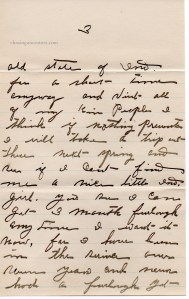 3
old state of Ind
for a short time
anyway and visit all
of my Kin People I
think if nothing prevents
I will take a trip out
there next spring and
see if I can't find
me a nice little Ind.
Girl. you see I can
get 3 month furlough
any time I want it
now, for I have been
in the service over
years and never
had a furlough yet